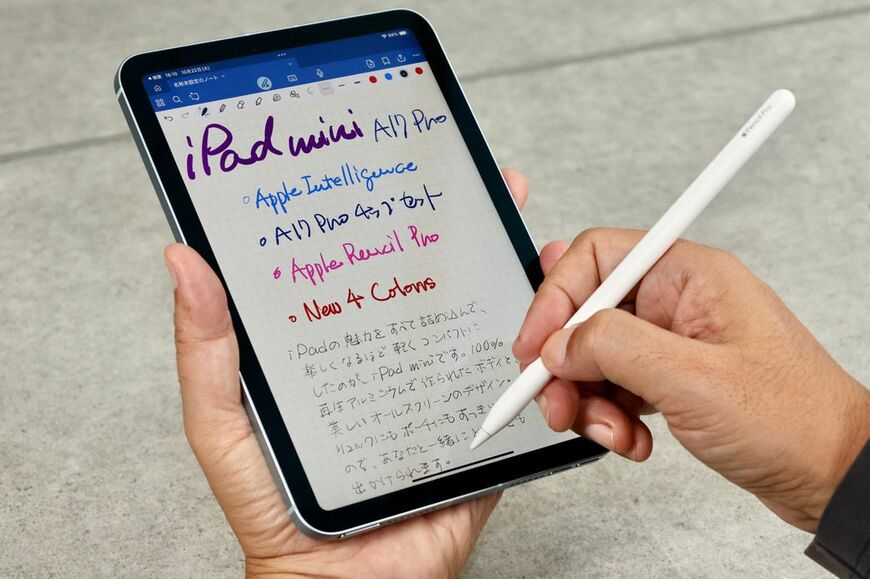 検索 18:10 10月22日(火) 84%
名称未設定のノート
iPad mini A17 Pro
Apple Intelligence
A17 Pro チップセット
Apple Pencil Pro
New 4 Colors
iPadの魅力をすべて詰め込んで、
楽しくなるほど軽くコンパクトに
したのが、iPad miniです。100%
再生アルミニウムで作られたボディと、
美しいオールスクリーンのデザイン。
リュックにもポーチにもすっ
ので、あなたと一緒に も
出かけられます。
Pencil Pro